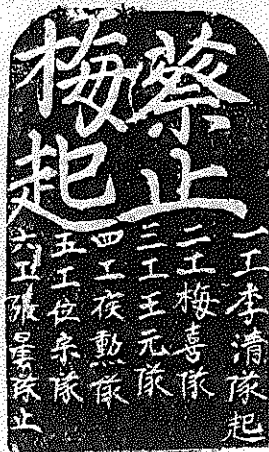 蔡止
梅起
一工李清隊起
二工梅喜隊
三工王元隊
四工勲隊
五工位隊
六工張隊止